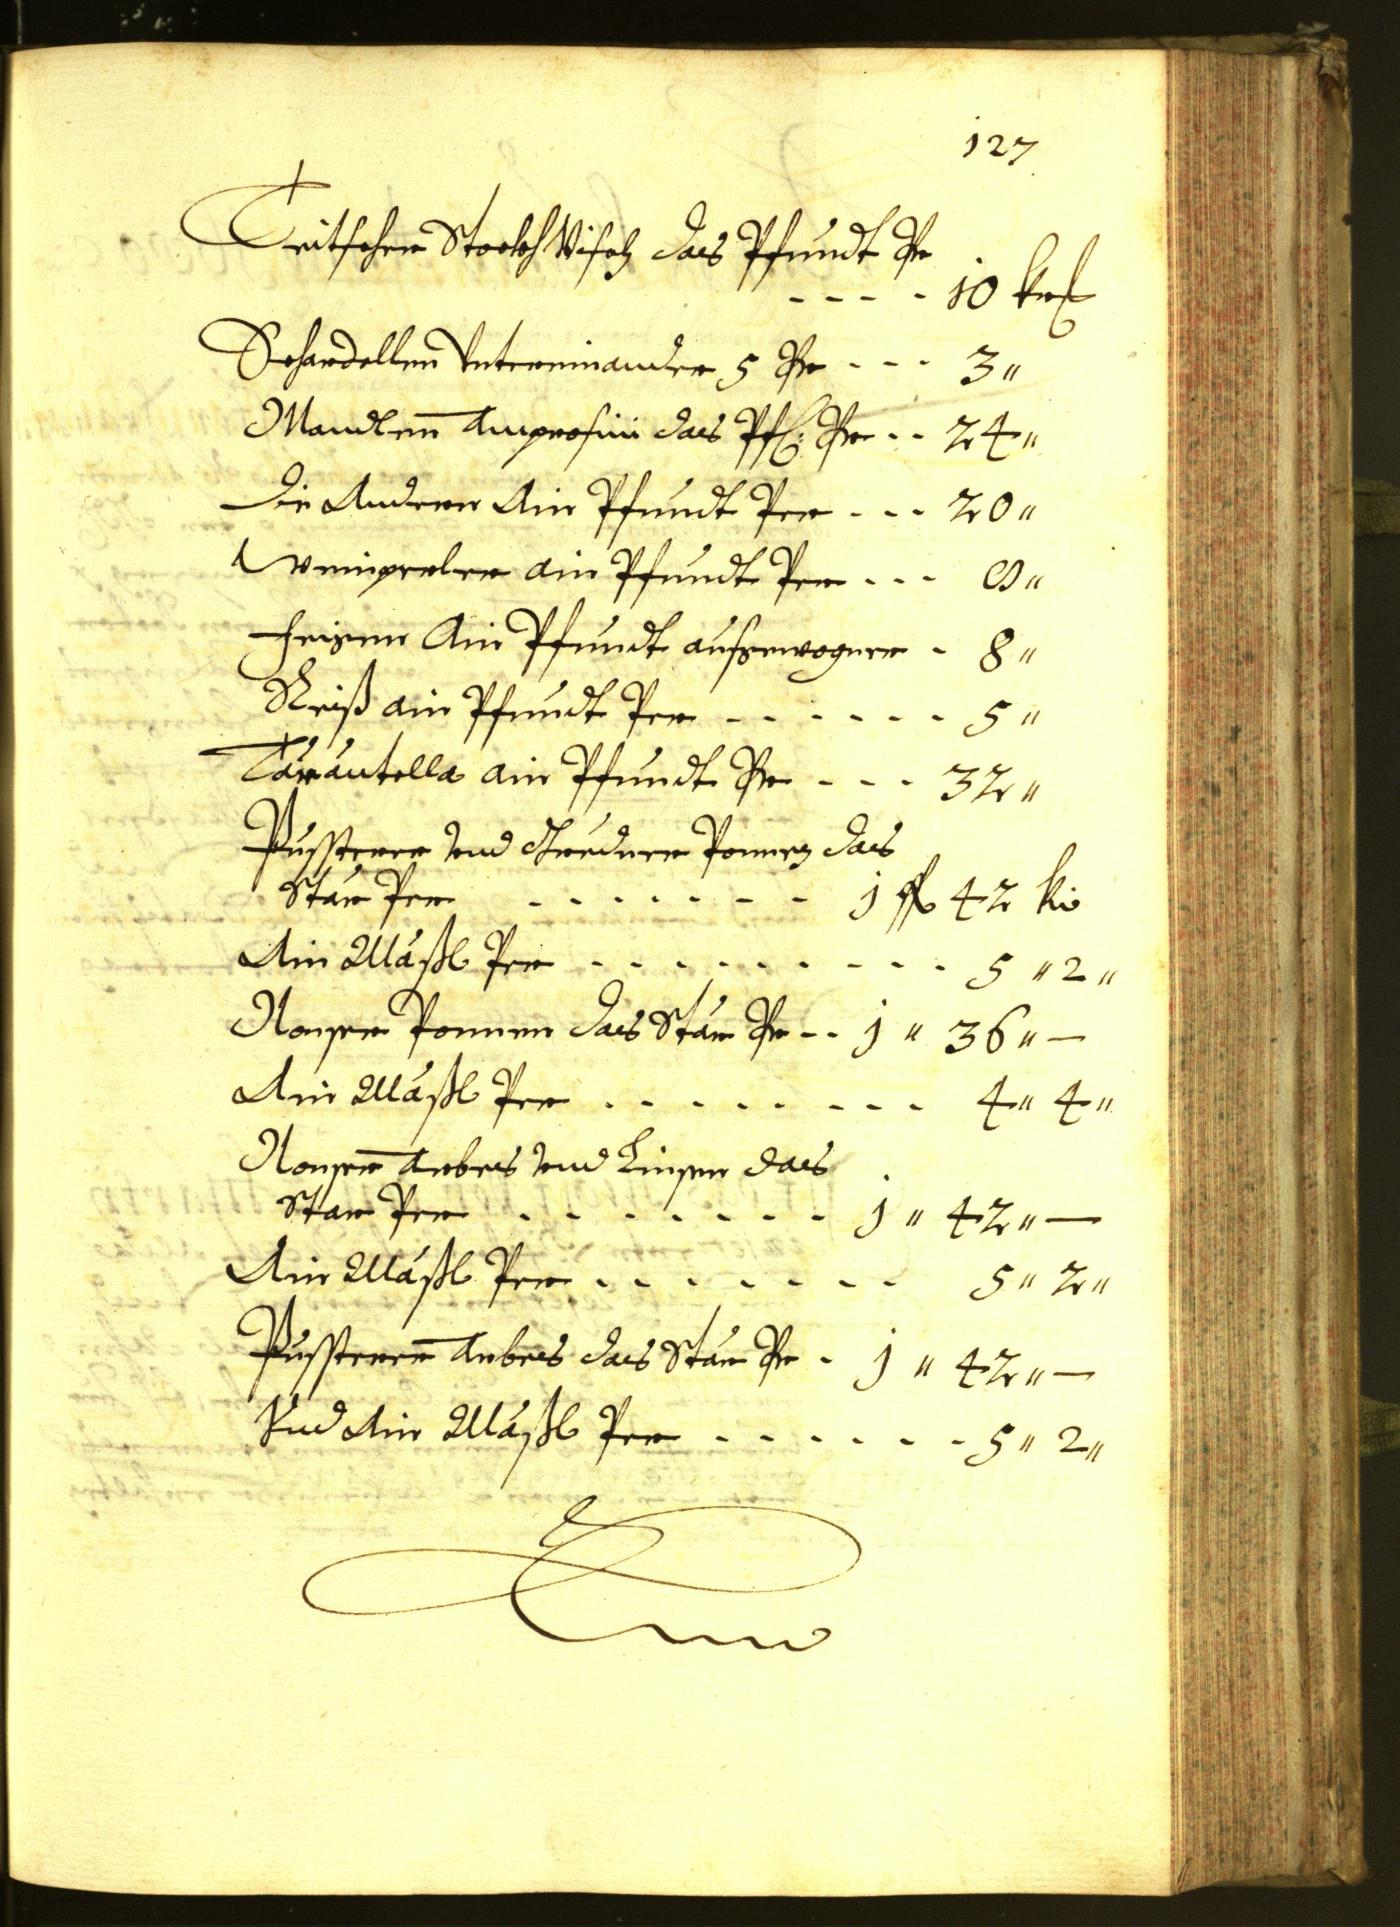 127
Teitscher Stockh Visch das Pfundt Per
- - - - 10 kr
Schardellen Unterainander 5 Per - - - 3 "
Mandlen Amprosin das Pf: Per - - 24 "
Die Andern Ain Pfundt Per - - - 20 "
Weinperler ain Pfundt Per - - - "
Feigen Ain Pfundt aufgewogner - 8 "
Reiß ain Pfundt Per - - - - - - 5 "
Tarantella ain Pfundt Per - - - 32 "
Pussterer und Ponnen das
Stär Per - - - - - - - 1 f 42 kr
Ain Mässl Per - - - - - - - - - 5 " 2 "
Nonser Ponnen das Stär Per - - 1 " 36 " —
Ain Mässl Per - - - - - - - - 4 " 4 "
Nonser Arbes und Linsen das
Star Per - - - - - - - 1 " 42 " —
Ain Mässl Per - - - - - - - 5 " 2 "
Pussterer Arbes das Stär Per - 1 " 42 " —
Und Ain Mässl Per - - - - - - 5 " 2 "